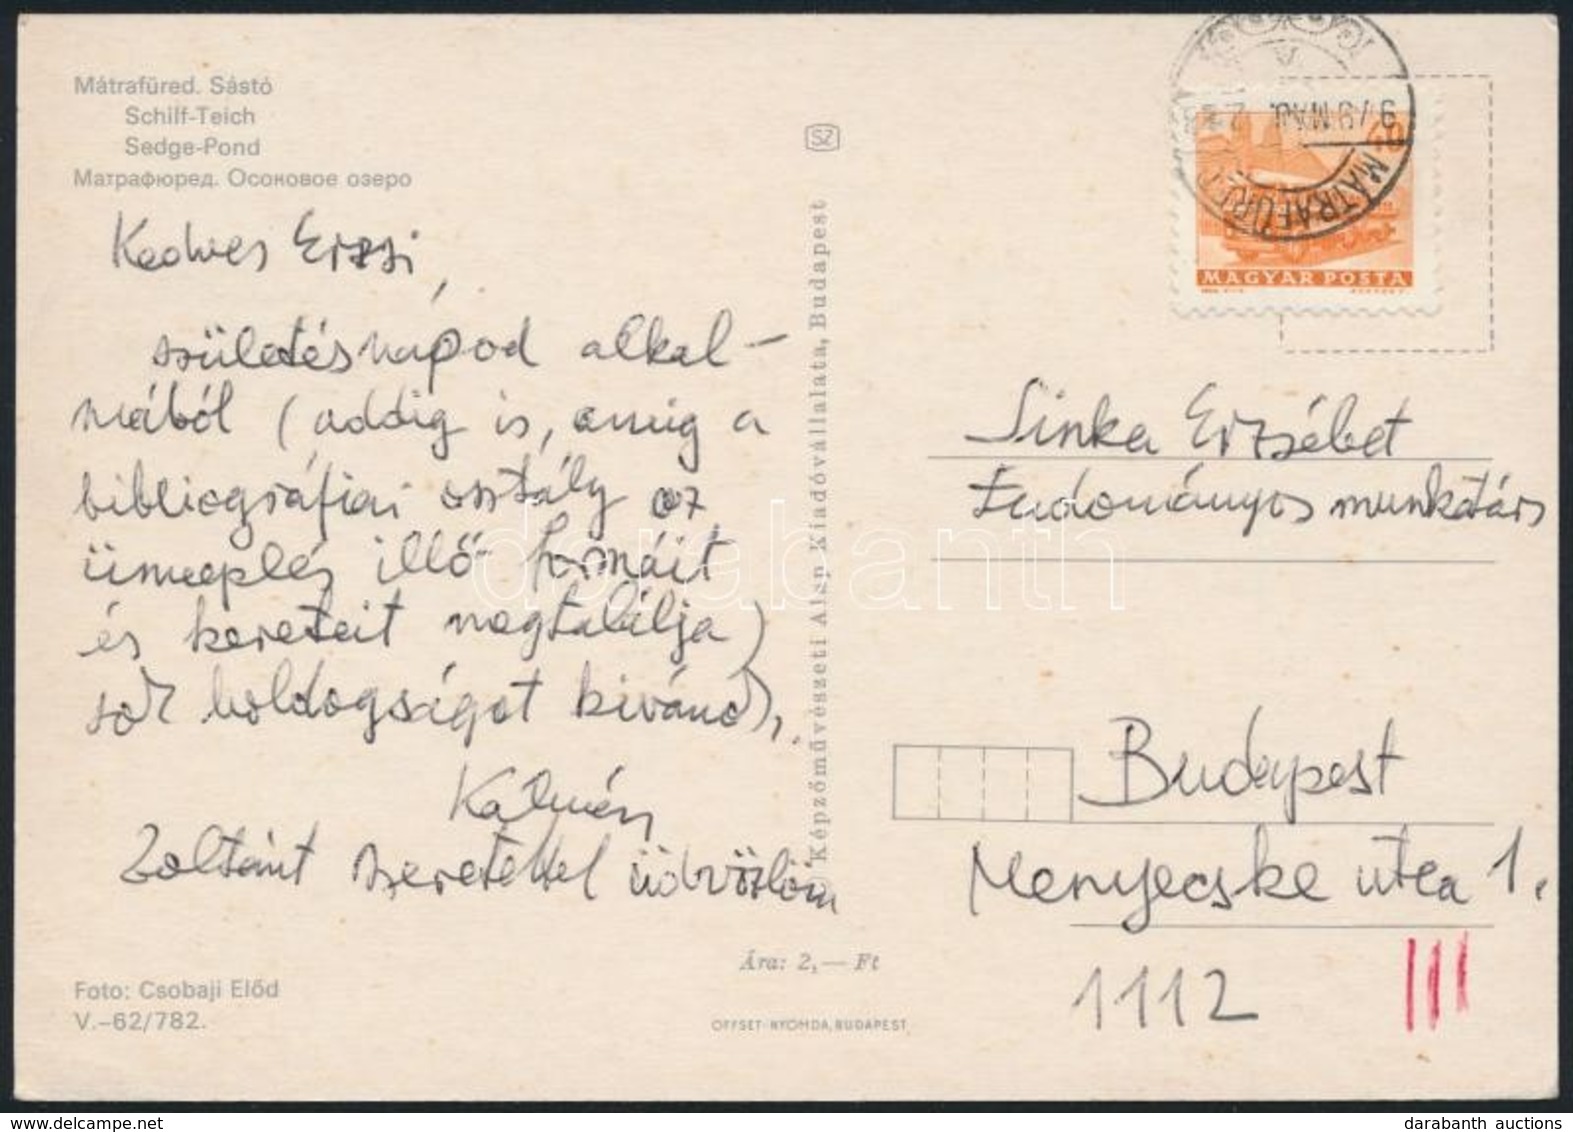 Mátrafüred. Sástó
Schilf-Teich
Sedge-Pond
Матрафюред. Осоковое озеро
Kedves Erzsi,
születésnapod alkal-
mából (addig is, amíg a
bibliográfiai osztály az
ünneplés illő formáit
és kereteit megtalálja)
sok boldogságot kívánok,
Kálmán
Zoltánt szeretettel üdvözlöm
Foto: Csobaji Előd
V.-62/782.
SZ
Képzőművészeti Alap Kiadóvállalata, Budapest
Ára: 2,— Ft
OFFSET-NYOMDA, BUDAPEST
979 MÁJ.
MÁTRAFÜRED
MAGYAR POSTA
Sinka Erzsébet
tudományos munkatárs
Budapest
Menyecske utca 1.
1112
darabanth
darabanth auctions